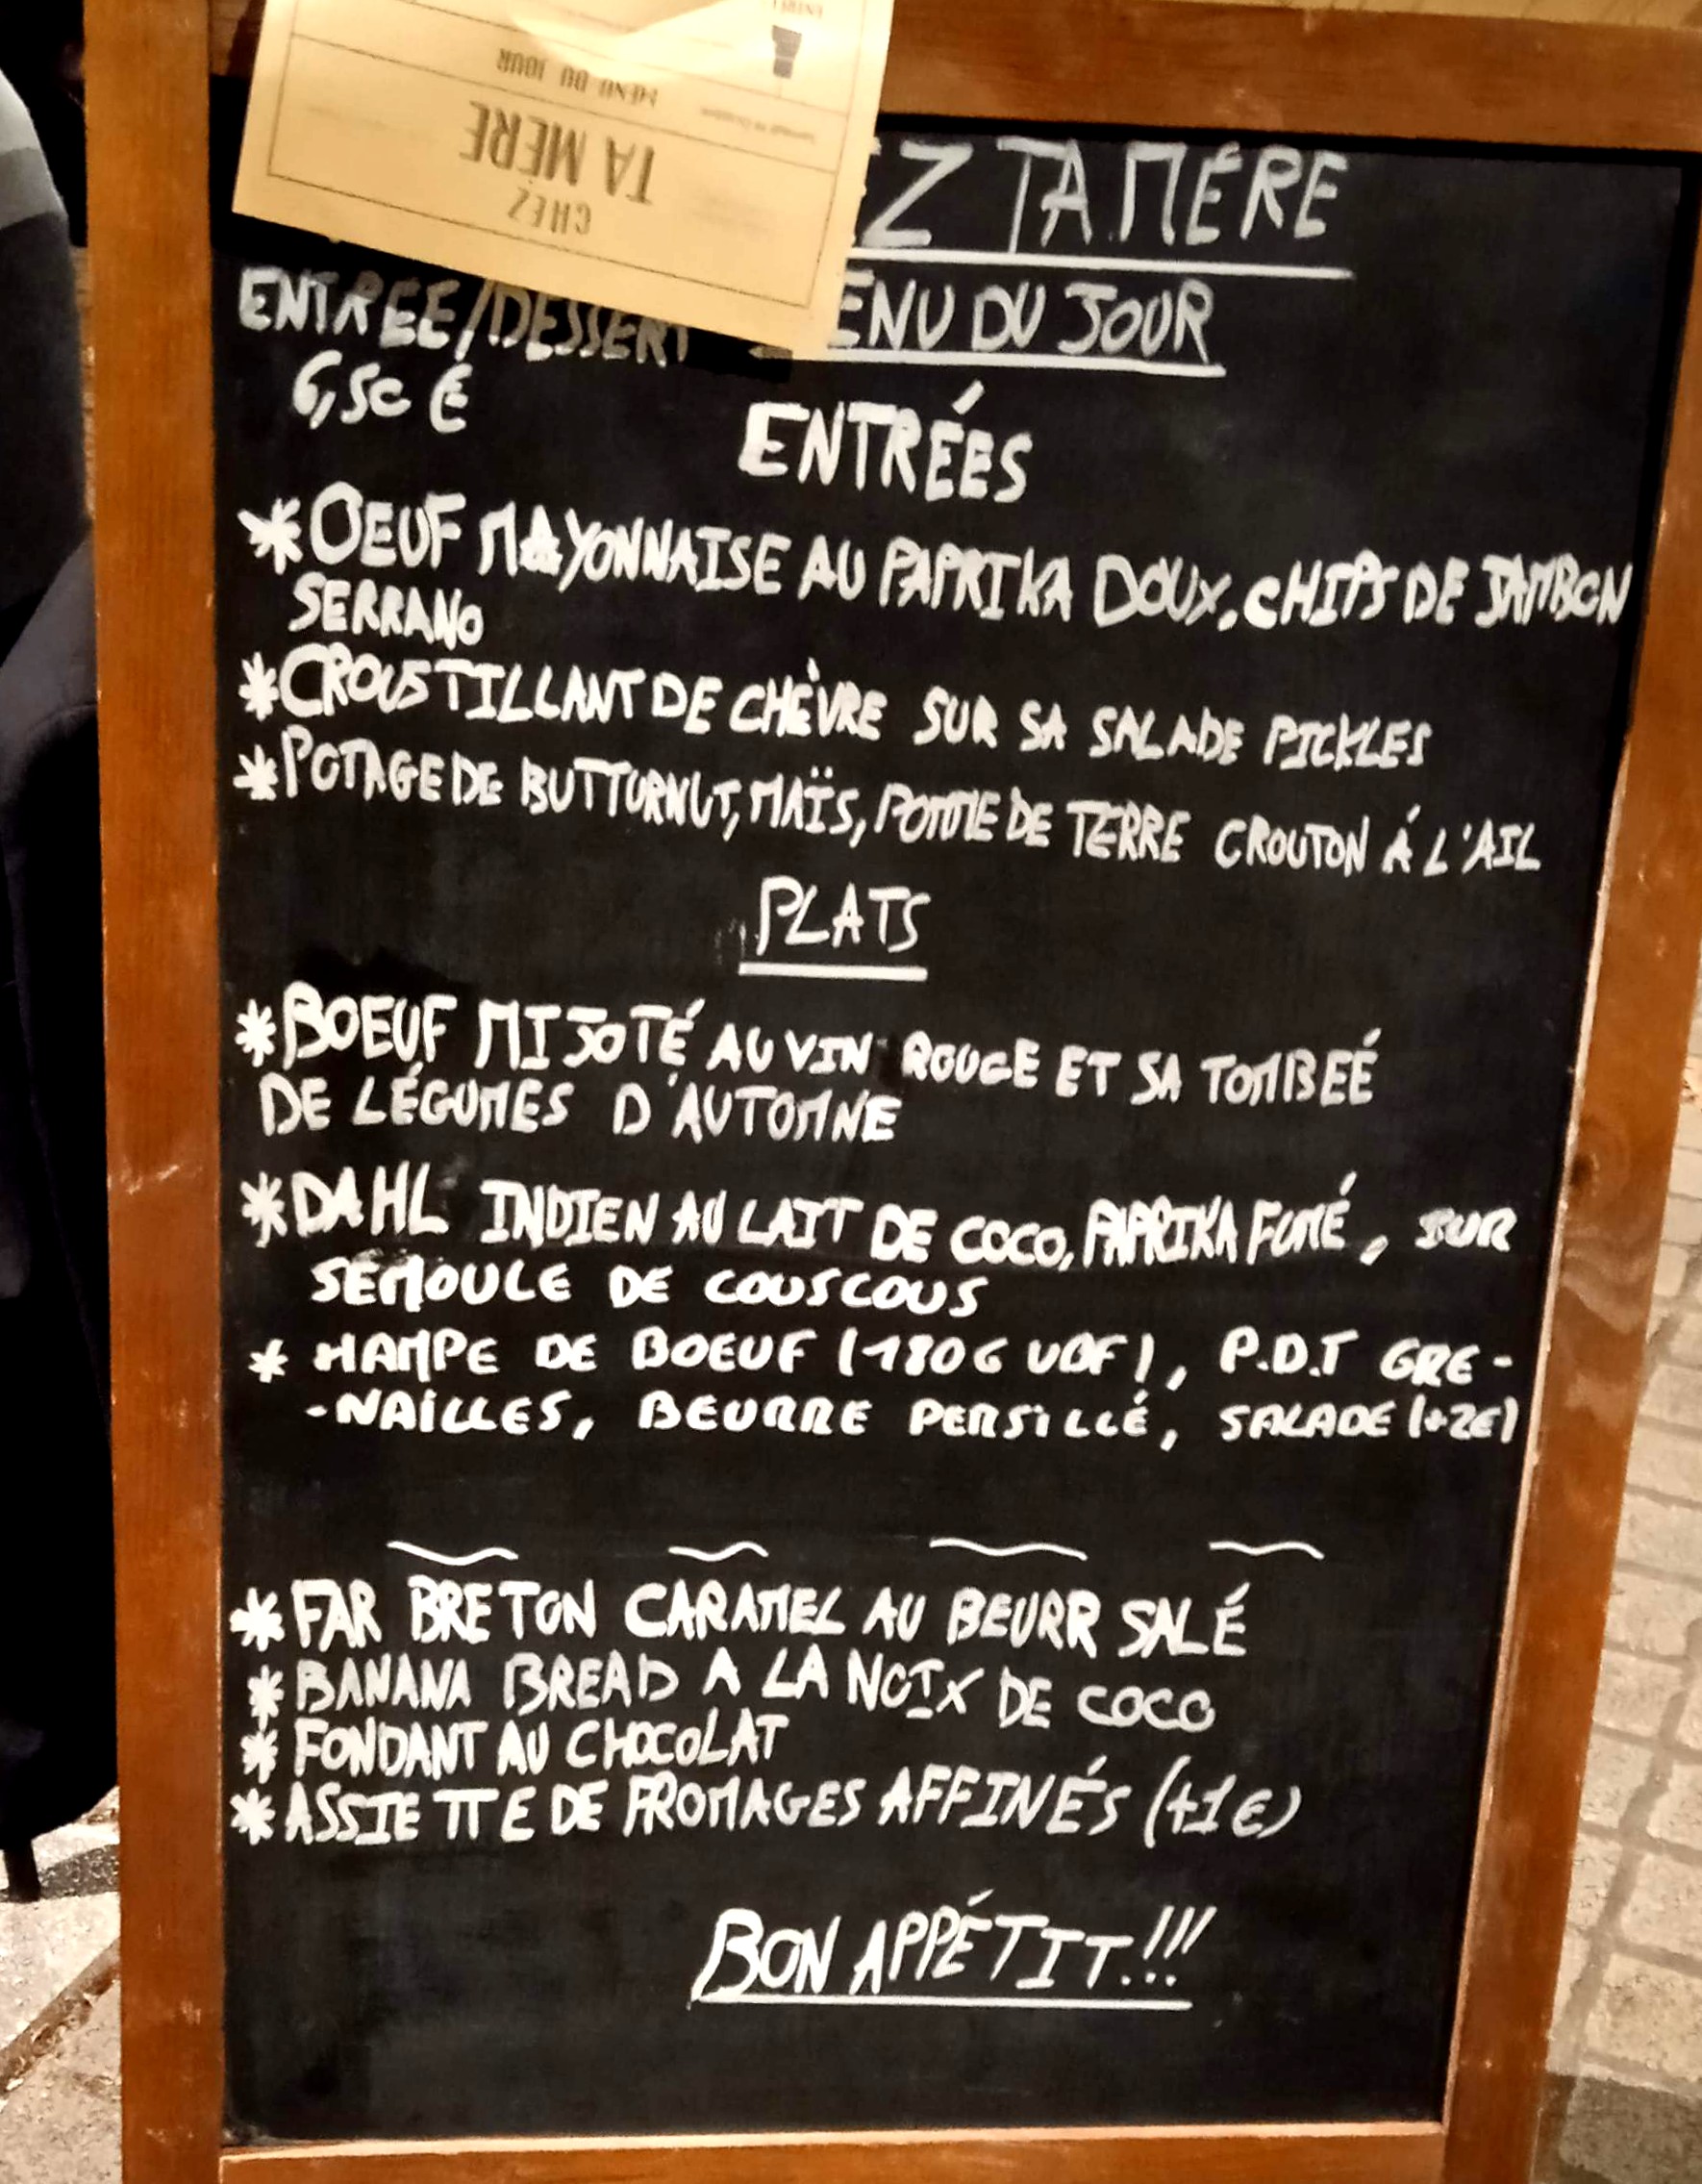 MENU DU JOUR
TA MÈRE
CHEZ
Z TA MÉRE
ENTREE/DESSERT
ENU DU JOUR
6,50 €
ENTRÉES
*OEUF MAYONNAISE AU PAPRIKA DOUX, CHIPS DE JAMBON
SERRANO
*CROUSTILLANT DE CHÈVRE SUR SA SALADE PICKLES
*POTAGE DE BUTTURNUT, MAÏS, POMME DE TERRE CROUTON Á L'AIL
PLATS
*BOEUF MIJOTÉ AU VIN ROUGE ET SA TOMBEÉ
DE LÉGUMES D'AUTOMNE
*DAHL INDIEN AU LAIT DE COCO, PAPRIKA FUMÉ, SUR
SEMOULE DE COUSCOUS
* HAMPE DE BOEUF (180G VBF), P.D.T GRE-
-NAILLES, BEURRE PERSILLÉ, SALADE (+2€)
*FAR BRETON CARAMEL AU BEURR SALÉ
* BANANA BREAD A LA NOIX DE COCO
* FONDANT AU CHOCOLAT
*ASSIETTE DE FROMAGES AFFINÉS (+1€)
BON APPÉTIT!!!